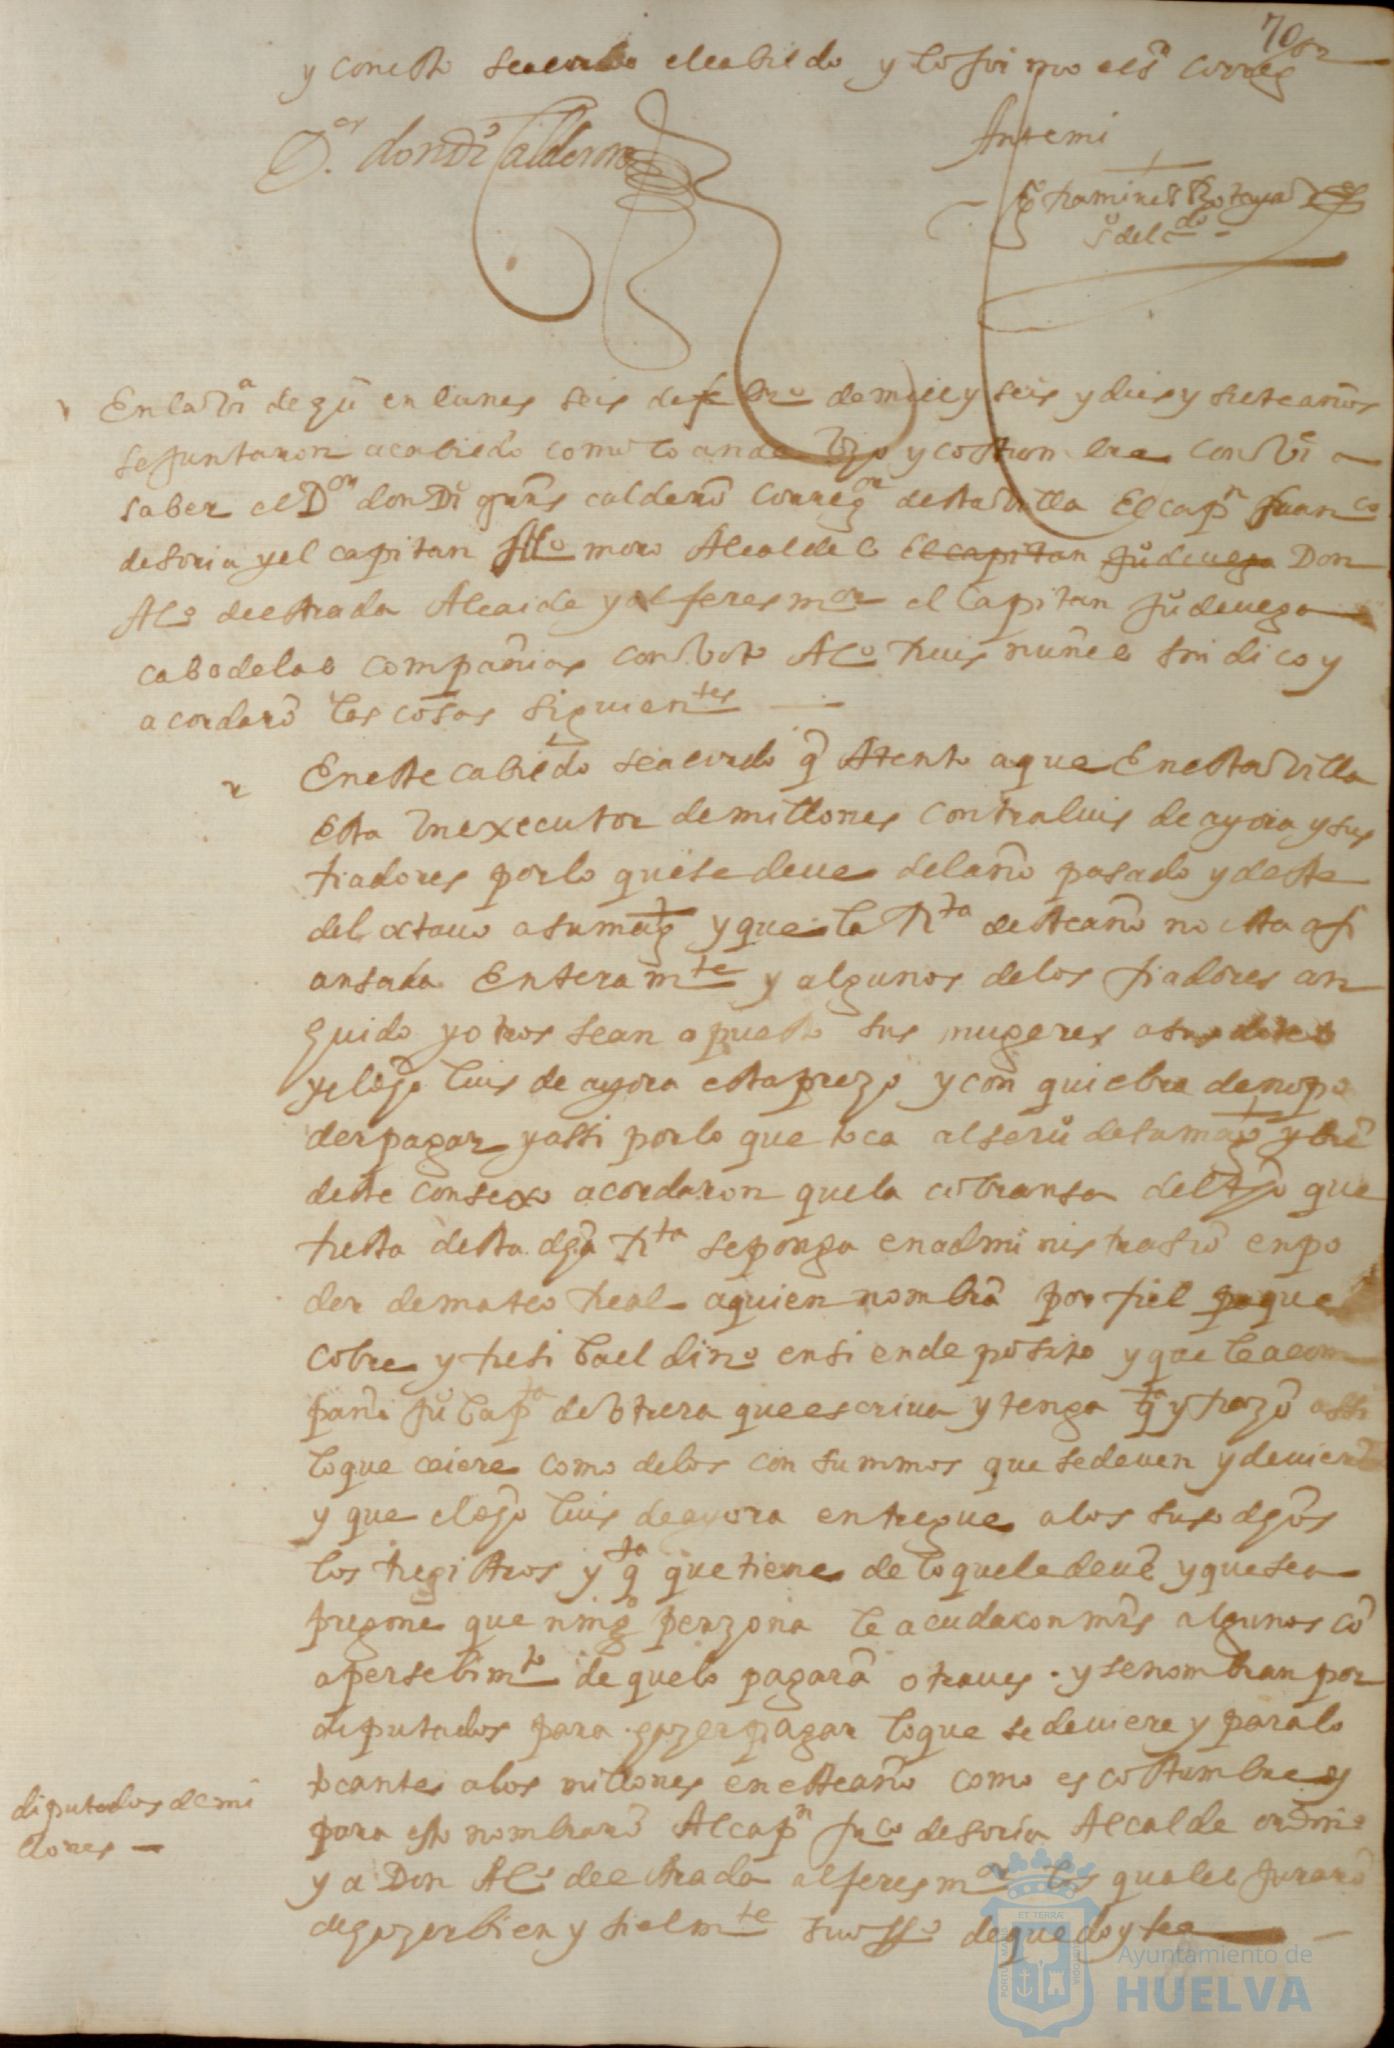 70
y con esto se acordo el cabildo y lo firmo el sr correg or
Dor don Di Calderon
Ante mi
sº del cdo
En la Vª de gu en lunes seis de febrº de mill y seis y dies y siete años
se juntaron a cabildo como lo an de uzo y costumbre conbi a
saber el Dor don Di grrs calderō Correg or desta Villa El capn franco
de soria y el capitan Alº moro Alcaldes El capitan Ju de uega Don
Alº de estrada Alcaide y alferes mor el Capitan Ju de uega
cabo de las compañias con Voto Alº Ruis nuñes sindico y
acordarō las cosas siguientes
En este cabildo se acordo q Atento a que En esta Villa
Esta Un executor de millones contra luis de ayora y sus
fiadores por lo que se deue del año pasado y deste
del octauo a su magd y que la Rta deste año no esta afi
ansada Enteramte y algunos de los fiadores an
huido y otros sean opuesto sus mugeres a sus dotes
y el dho luis de ayora esta prezo y con quiebra de no po
der pagar y assi por lo que toca al seru de su magd y bie
deste consexo acordaron que la cobransa del tpo que
resta desta dha Rta se ponga en administrasiō en po
der de mateo Real a quien nombrā por fiel pa que
cobre y resiba el dinº en si en deposito y que le acom
pañe Ju bapta de Utrera que escriua y tenga qta y razō assi
lo que caiere como de los consummos que se deuen y deuierē
y que el dho luis de ayora entregue a los suso dhos
los registros y qta que tiene de lo que le deuē y que sea
pregone que ningª perzona le acuda con mrs algunos cō
apersebimto de que lo pagarā otraues . y se nombran por
diputados para hazer pagar lo que se deuiere y para lo
tocante a los millones en este año como es costumbre y
para esto nombrarō Al capn frco de soria Alcalde ordinº
y a Don Alº de estrada alferes mor los quales jurarō
de hazer bien y fielmte su offº de que doy fee
diputados de mi
llones
ET TERRÆ
PORTUS MARIS
CUSTODIA
Ayuntamiento de
HUELVA